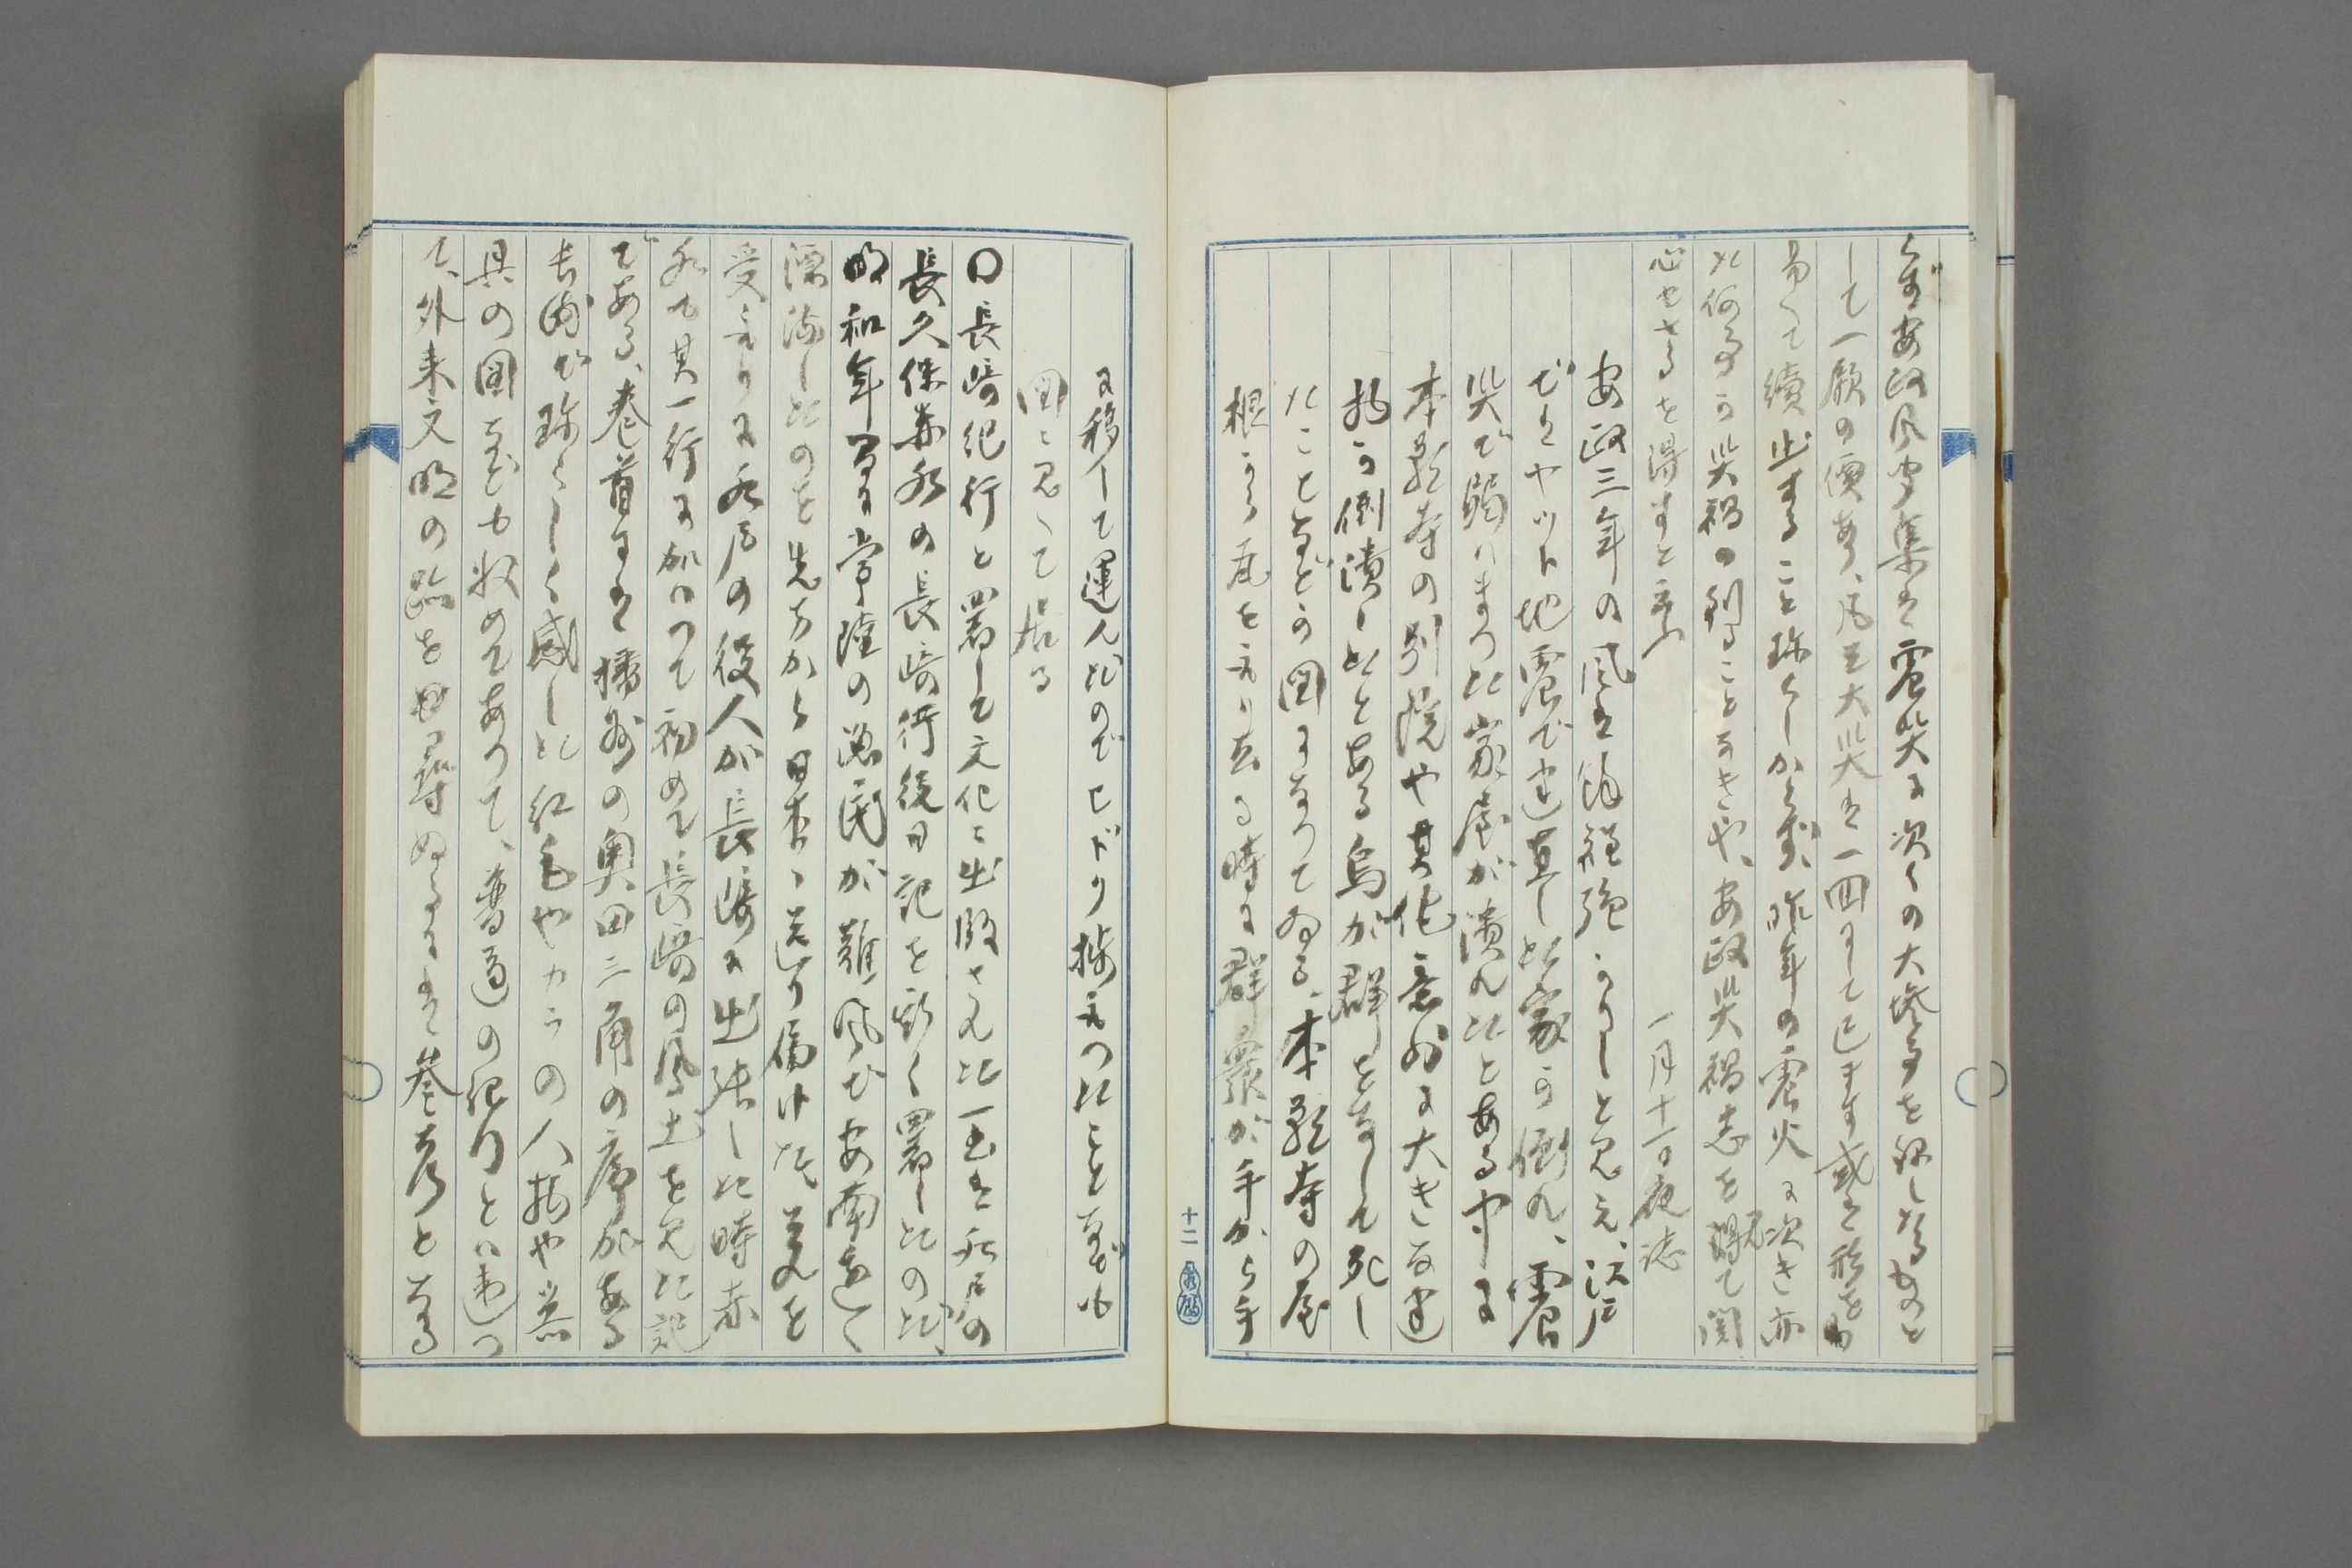 らず安政風聞集は震災に次くの大惨事を録しなるものと
して一顧の價あり、凡そ大災は一回にして已まず或は形を
易へて續出すること珍らしからず、昨年の震火に次き亦
た何等の災禍の到ることなきや、安政災禍志を得て関
心せさるを得すと云ふ
一月十一日夜誌
安政三年の風は餘程強かりしと見え、江戸
でもヤット地震で建直した家の倒れ、震
災で弱はまつた家屋が潰れたとある中に
本願寺の別院や其他意外に大きな建
物の倒潰したとある鳥が群をなして死し
たことなどの図になつてゐる、本願寺の屋
根から瓦を取り去る時に群衆が手から手
十二
に移して運んだのでヒドク捗取つたことなども
図に見へて居る
〇長崎紀行と署して文化に出版された一書は水戸の
長久保赤水の長崎行役日記を新しく署したのだ、
明和年間に常陸の漁民が難風で安南遠く
漂流したのを先方から日本へ送り届けた、夫れを
受取りに水戸の役人が長崎に出張した時赤
水も其一行に加はつて初めて長崎の風土を見た記
である、巻首には播州の奥田三角の序がある
赤水が珍らしく感した紅毛やカラの人物や器
具の図なども収めてあつて、普通の紀行とは違つ
て、外来文明の跡を尋ぬるには参考となる